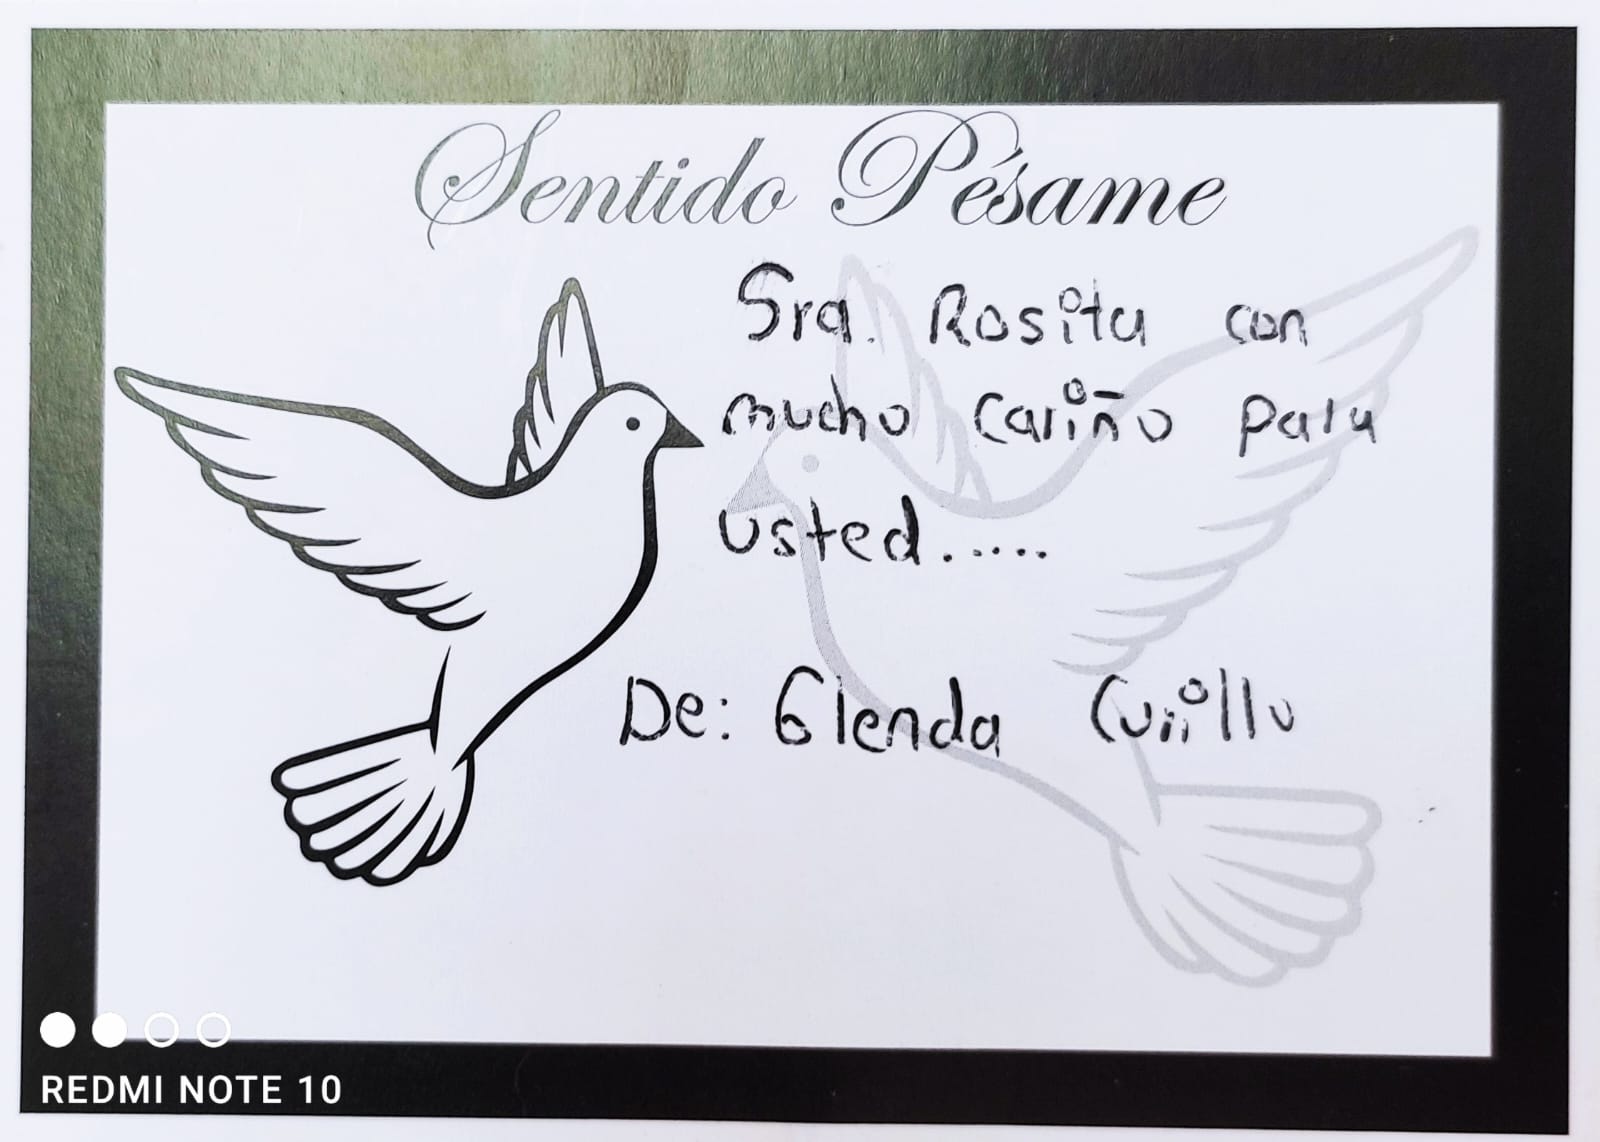 Sentido Pésame
Sra. Rosita con
mucho cariño para
usted......
De: Glenda
REDMI NOTE 10